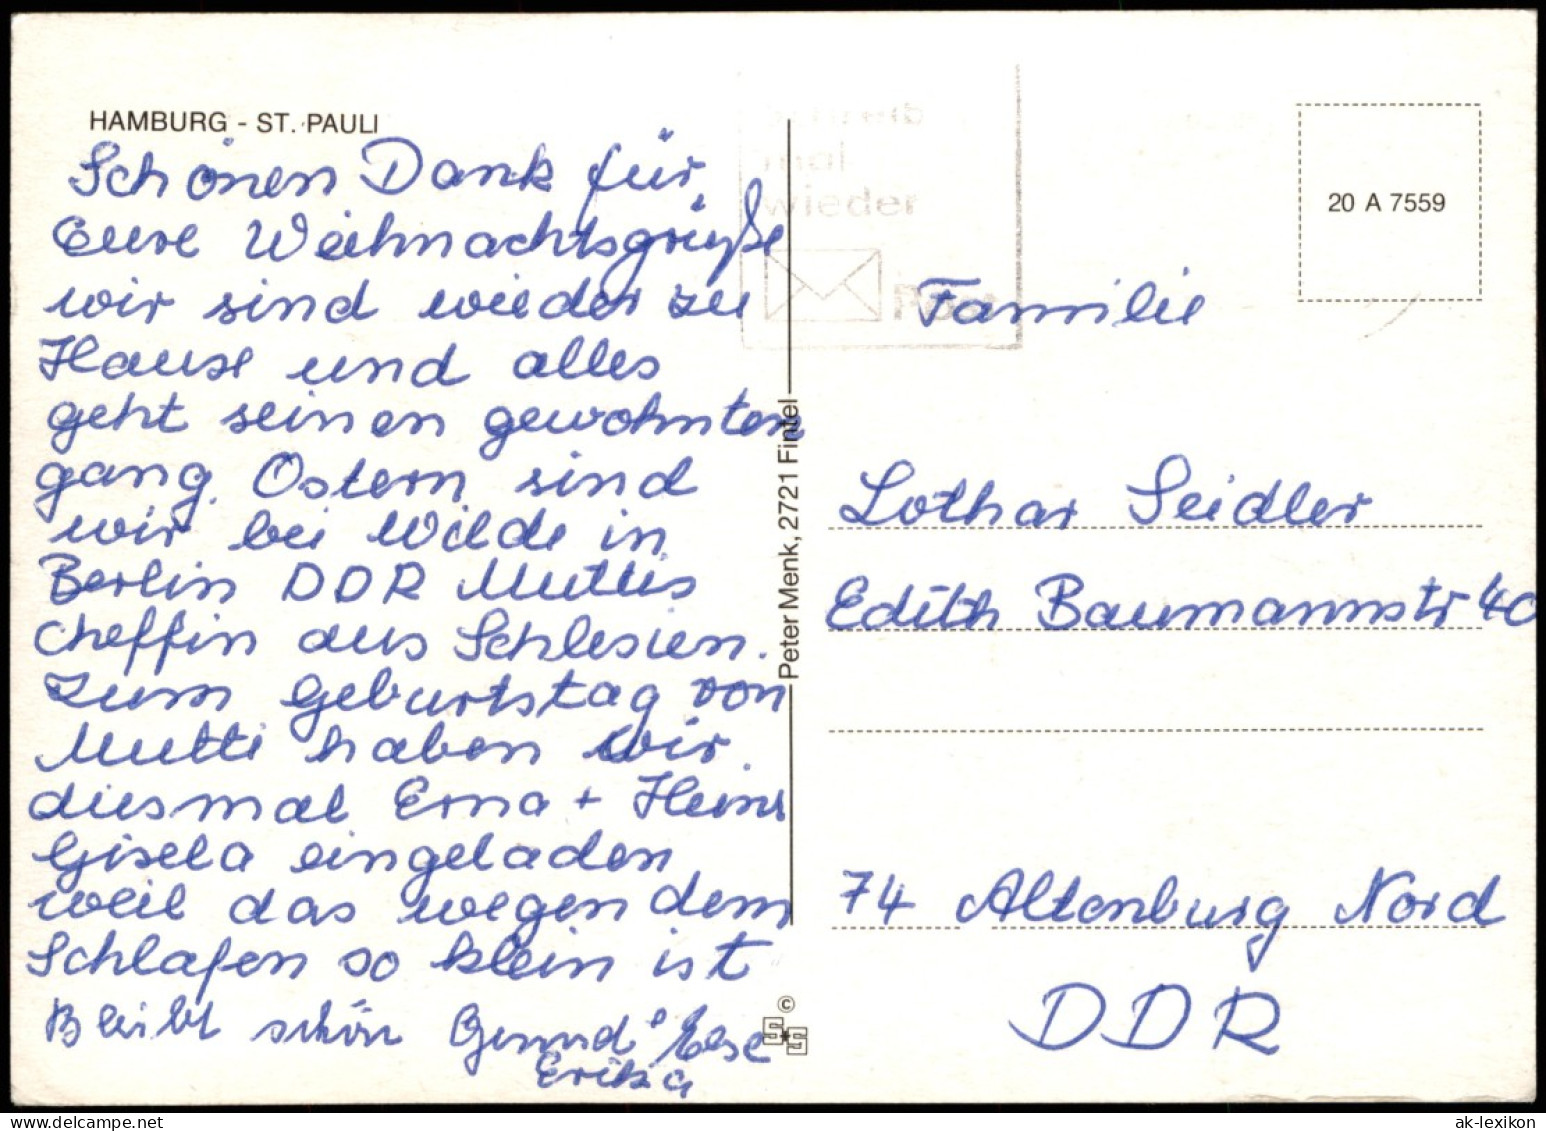 HAMBURG - ST. PAULI
Schönen Dank für
Eure Weihnachtsgrüße
wir sind wieder zu
Hause und alles
geht seinen gewohnten
gang. Ostern sind
wir bei Wilde in
Berlin DDR Muttis
cheffin aus Schlesien.
Zum Geburtstag von
Mutti haben wir
diesmal Erna + Heinz
Gisela eingeladen
weil das wegen dem
Schlafen so klein ist
Bleibt schön
Erika
Peter Menk, 2721 Fintel
©
mal
wieder
Post
20 A 7559
Familie
Lothar Seidler
Edith Baumannstr 40
74 Altenburg Nord
DDR
ak-lexikon